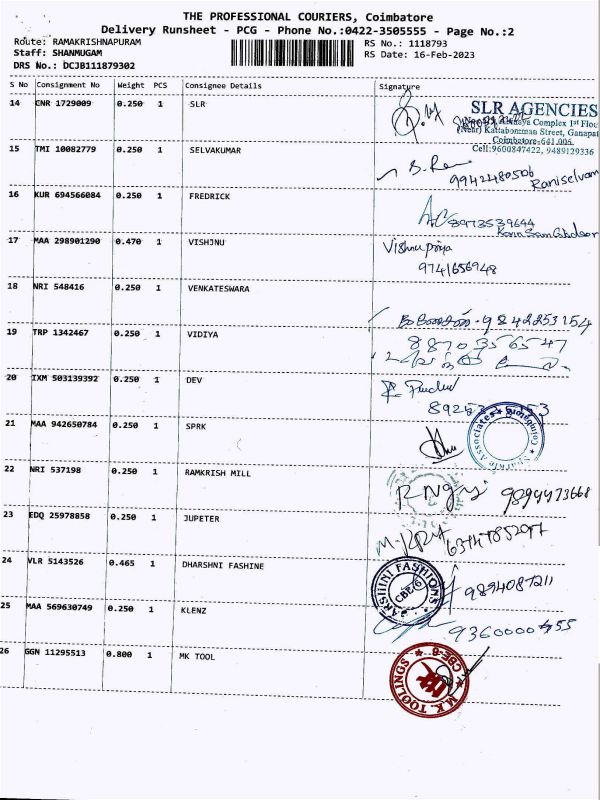 THE PROFESSIONAL COURIERS, Coimbatore
Delivery Runsheet - PCG - Phone No.:0422-3505555 - Page No.:2
Route: RAMAKRISHNAPURAM
Staff: SHANMUGAM
DRS No.: DCJB111879302
RS No.: 1118793
RS Date: 16-Feb-2023
S No Consignment No Weight PCS Consignee Details Signature
14 CNR 1729009 0.250 1 SLR
SLR AGENCIES
Complex 1st Floo
(Near) Kattabomman Street, Ganapat
Coimbatore-641 006.
Cell:9600847422, 9489129336
15 TMI 10082779 0.250 1 SELVAKUMAR
9942480506 Raniselvam
16 KUR 694566084 0.250 1 FREDRICK
8973539644
17 MAA 298901290 0.470 1 VISHJNU
Vishnupriya
9741656948
18 NRI 548416 0.250 1 VENKATESWARA
9842253154
19 TRP 1342467 0.250 1 VIDIYA
8870356547
20 IXM 503139392 0.250 1 DEV
21 MAA 942650784 0.250 1 SPRK
Associates
Coimbatore
22 NRI 537198 0.250 1 RAMKRISH MILL
9894473668
23 EDQ 25978858 0.250 1 JUPETER
24 VLR 5143526 0.465 1 DHARSHNI FASHINE
ARSHINI FASHIONS
CBE-6
9894087211
25 MAA 569630749 0.250 1 KLENZ
26 GGN 11295513 0.800 1 MK TOOL
M.K. TOOLINGS
CBE-6